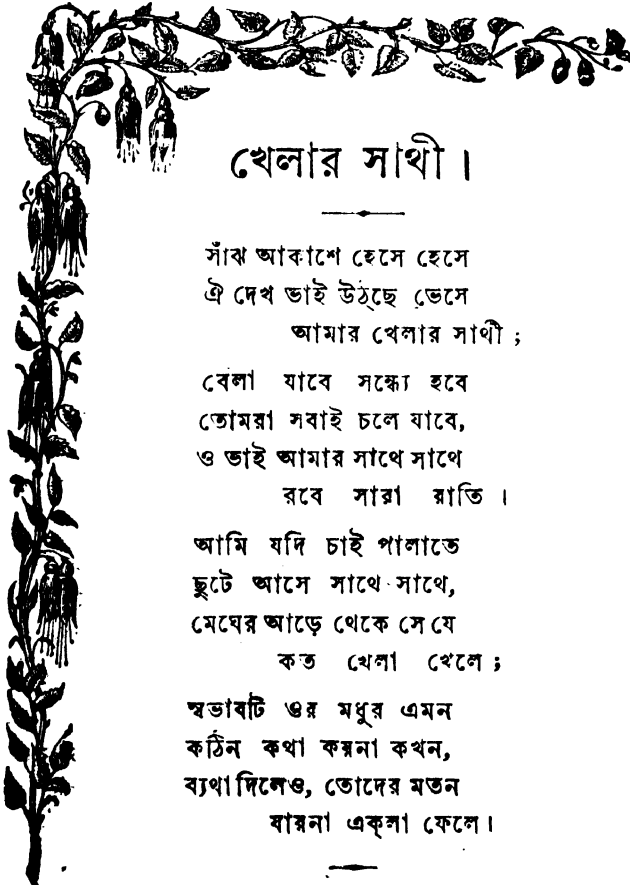 খেলার সাথী।
সাঁঝ আকাশে হেসে হেসে
ঐ দেখ ভাই উঠ্‌ছে ভেসে
আমার খেলার সাথী;
বেলা যাবে সন্ধ্যে হবে
তোমরা সবাই চলে যাবে,
ও ভাই আমার সাথে সাথে
রবে সারা রাতি।
আমি যদি চাই পালাতে
ছুটে আসে সাথে সাথে,
মেঘের আড়ে থেকে সে যে
কত খেলা খেলে;
স্বভাবটি ওর মধুর এমন
কঠিন কথা কয়না কখন,
ব্যথা দিলেও, তোদের মতন
যায়না এক্‌লা ফেলে।